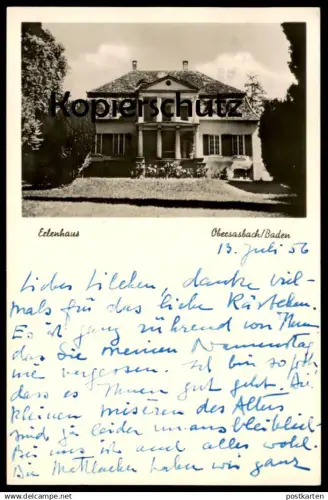 Kopierschutz
Erlenhaus Obersasbach/Baden
13. Juli 56
Liebes Lilchen, danke viel-
mals für das liebe Kärtchen.
Es ist ganz rührend von Ihnen
das Sie meinen Namenstag
nie vergessen. Ich bin so froh
dass es Ihnen gut geht. Die
kleinen misèren des Alters
sind ja leider unausbleiblich.
Bei uns ist auch alles wohl.
Die haben wir ganz
www.postkarten.at